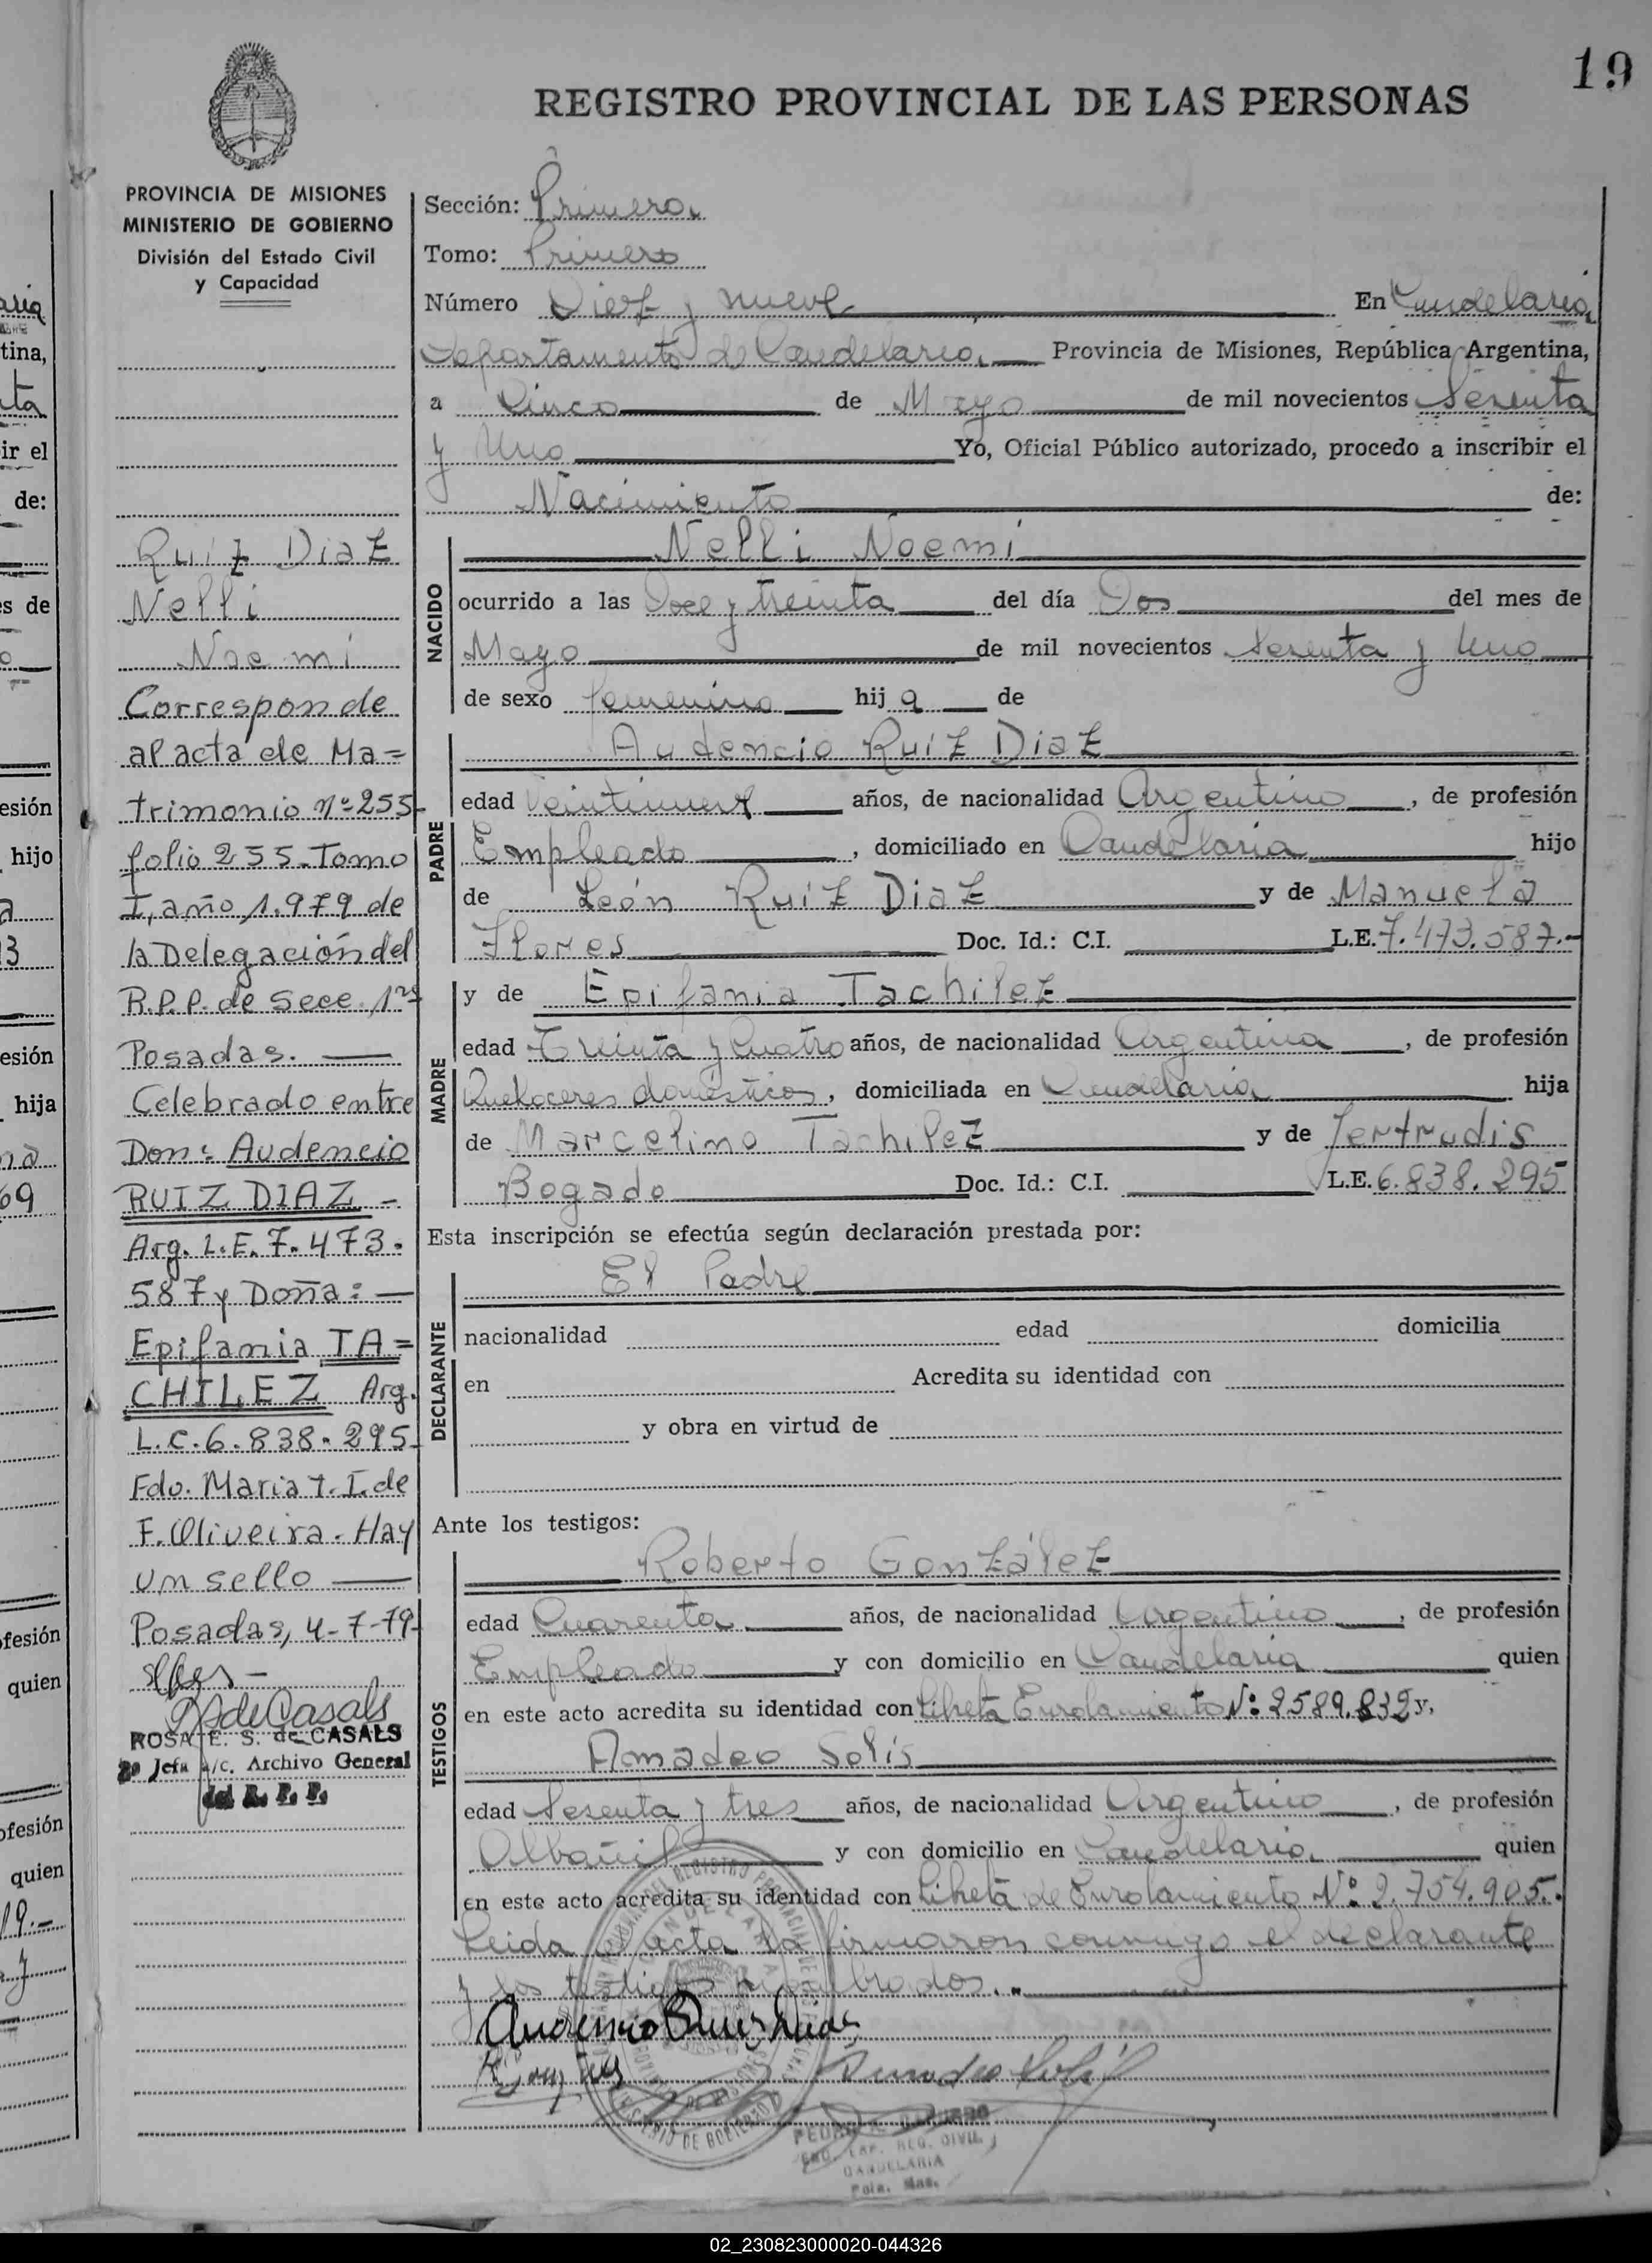 19
REGISTRO PROVINCIAL DE LAS PERSONAS
PROVINCIA DE MISIONES
MINISTERIO DE GOBIERNO
División del Estado Civil
y Capacidad
Ruiz Diaz
Nelli
Noemi
Corresponde
al acta de Ma=
trimonio Nº 255-
folio 255-Tomo
I, año 1.979 de
la Delegación del
R.P.P. de Secc. 1ra
Posadas.
Celebrado entre
Don: Audencio
RUIZ DIAZ -
Arg. L.E. 7.473.
587 y Doña:
Epifania TA=
CHILEZ Arg.
L.C. 6.838.295-
Fdo. Maria T. I. de
F. Oliveira - Hay
un sello
Posadas, 4-7-79-
de Casals
ROSA E. S. de CASALS
2º Jefa a/c. Archivo General
del R. P. P.
Sección: Primera
Tomo: Primero
Número Diez y nueve En Candelaria,
Departamento de Candelaria, Provincia de Misiones, República Argentina,
a Cinco de Mayo de mil novecientos Sesenta
y Uno Yo, Oficial Público autorizado, procedo a inscribir el
Nacimiento de:
NACIDO
Nelli Noemi
ocurrido a las Doce y treinta del día Dos del mes de
Mayo de mil novecientos Sesenta y Uno
de sexo femenino hija de
PADRE
Audencio Ruiz Diaz
edad Veintinueve años, de nacionalidad Argentino, de profesión
Empleado, domiciliado en Candelaria hijo
de León Ruiz Diaz y de Manuela
Flores Doc. Id.: C.I. L.E. 7.473.587.-
MADRE
y de Epifania Tachilez
edad Treinta y Cuatro años, de nacionalidad Argentina, de profesión
Quehaceres domésticos, domiciliada en Candelaria hija
de Marcelino Tachilez y de Jertrudis
Bogado Doc. Id.: C.I. L.E. 6.838.295
Esta inscripción se efectúa según declaración prestada por:
DECLARANTE
El Padre
nacionalidad edad domicilia
en Acredita su identidad con
y obra en virtud de
Ante los testigos:
TESTIGOS
Roberto González
edad Cuarenta años, de nacionalidad Argentino, de profesión
Empleado y con domicilio en Candelaria quien
en este acto acredita su identidad con Libreta Enrolamiento Nº 2589.832 y,
Amadeo Solis
edad Sesenta y tres años, de nacionalidad Argentino, de profesión
Albañil y con domicilio en Candelaria, quien
en este acto acredita su identidad con Libreta de Enrolamiento Nº 2.754.905.-
Leida el acta la firmaron conmigo el declarante
y los testigos nombrados.
Audencio Ruis Dias
Amadeo Solis
CAP. REG. CIVIL
CANDELARIA
Pcia. Mns.
02_230823000020-044326